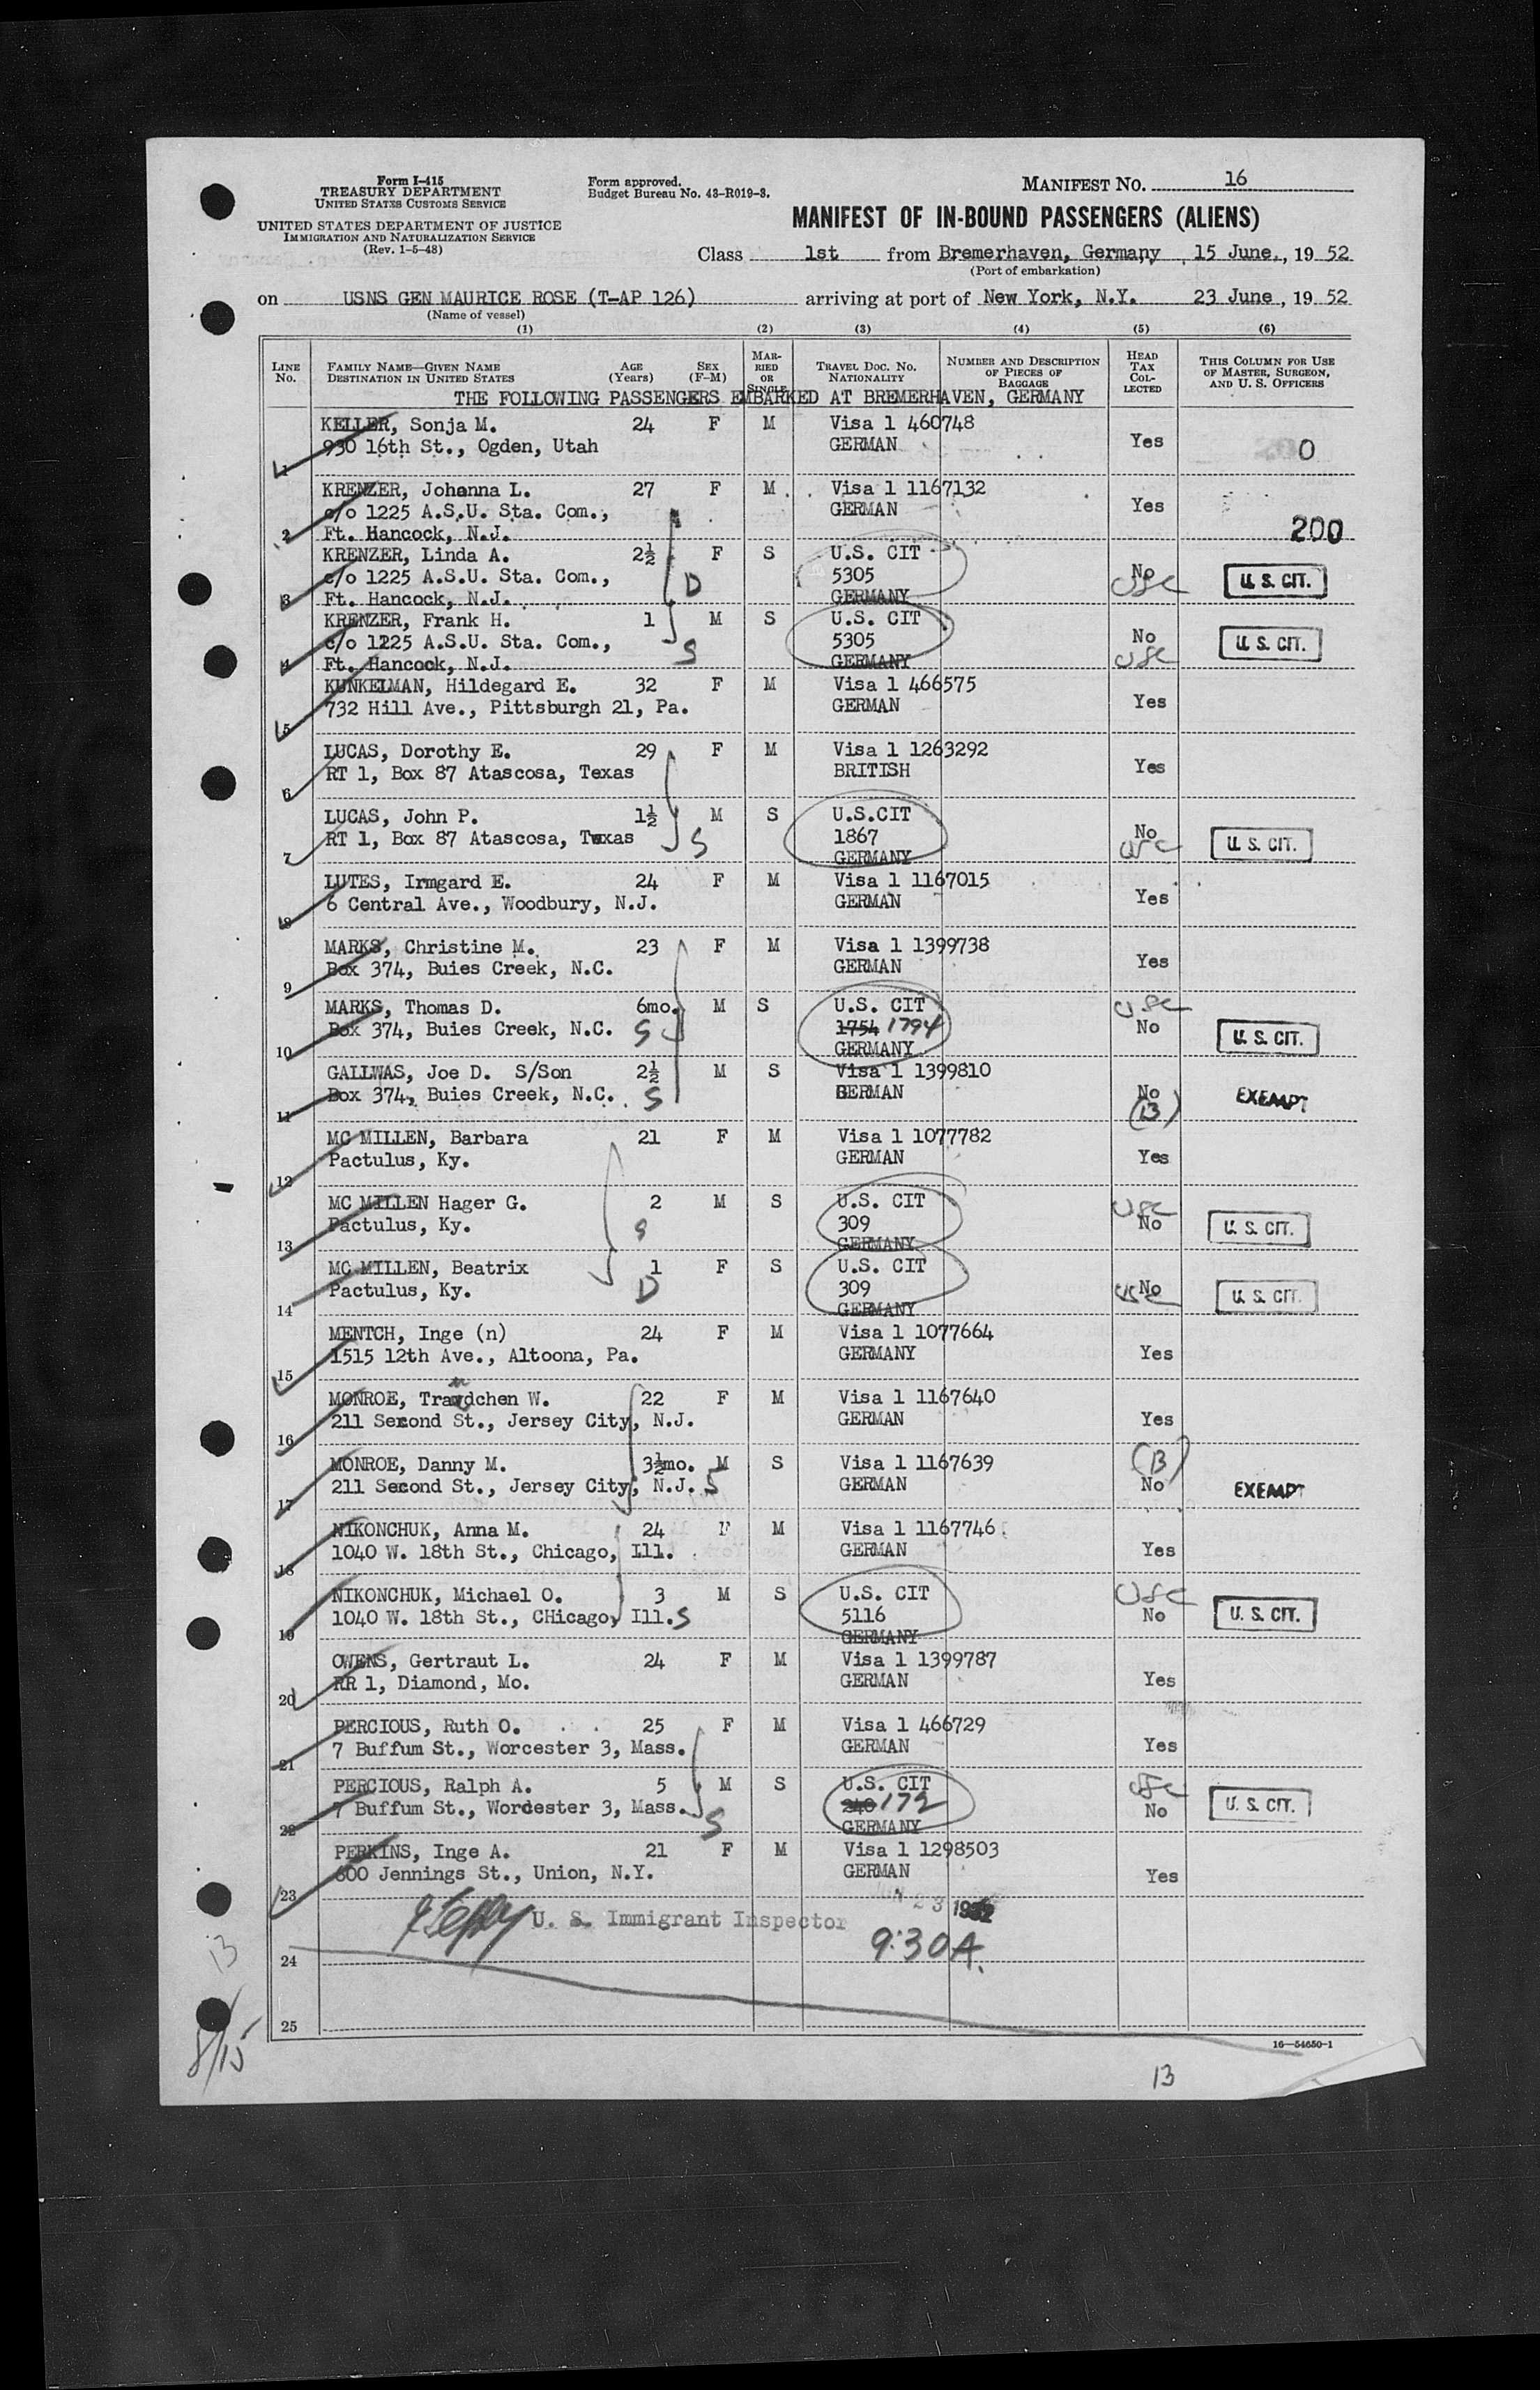 Form I-415
TREASURY DEPARTMENT
UNITED STATES CUSTOMS SERVICE
UNITED STATES DEPARTMENT OF JUSTICE
IMMIGRATION AND NATURALIZATION SERVICE
(Rev. 1-5-48)
Form approved.
Budget Bureau No. 43-R019-3.
MANIFEST NO. 16
MANIFEST OF IN-BOUND PASSENGERS (ALIENS)
Class 1st from Bremerhaven, Germany, 15 June, 19 52
(Port of embarkation)
on USNS GEN MAURICE ROSE (T-AP 126) arriving at port of New York, N.Y. 23 June, 19 52
(Name of vessel)
(1) (2) (3) (4) (5) (6)
LINE No. FAMILY NAME—GIVEN NAME DESTINATION IN UNITED STATES AGE (Years) SEX (F-M) MARRIED OR SINGLE TRAVEL DOC. NO. NATIONALITY NUMBER AND DESCRIPTION OF PIECES OF BAGGAGE HEAD TAX COLLECTED THIS COLUMN FOR USE OF MASTER, SURGEON, AND U. S. OFFICERS
THE FOLLOWING PASSENGERS EMBARKED AT BREMERHAVEN, GERMANY
KELLER, Sonja M. 24 F M Visa 1 460748
1 930 16th St., Ogden, Utah GERMAN Yes 0
KRENZER, Johanna L. 27 F M Visa 1 1167132
c/o 1225 A.S.U. Sta. Com., GERMAN Yes
2 Ft. Hancock, N.J. 200
KRENZER, Linda A. 2½ F S U.S. CIT
c/o 1225 A.S.U. Sta. Com., D 5305 No USC U. S. CIT.
3 Ft. Hancock, N.J. GERMANY
KRENZER, Frank H. 1 M S U.S. CIT
c/o 1225 A.S.U. Sta. Com., 5305 No U. S. CIT.
4 Ft. Hancock, N.J. S GERMANY USC
KUNKELMAN, Hildegard E. 32 F M Visa 1 466575
5 732 Hill Ave., Pittsburgh 21, Pa. GERMAN Yes
LUCAS, Dorothy E. 29 F M Visa 1 1263292
6 RT 1, Box 87 Atascosa, Texas BRITISH Yes
LUCAS, John P. 1½ M S U.S.CIT
7 RT 1, Box 87 Atascosa, Texas S 1867 No USC U. S. CIT.
GERMANY
LUTES, Irmgard E. 24 F M Visa 1 1167015
8 6 Central Ave., Woodbury, N.J. GERMAN Yes
MARKS, Christine M. 23 F M Visa 1 1399738
9 Box 374, Buies Creek, N.C. GERMAN Yes
MARKS, Thomas D. 6mo. M S U.S. CIT USC
10 Box 374, Buies Creek, N.C. S 1754 1794 No U. S. CIT.
GERMANY
GALLWAS, Joe D. S/Son 2½ M S Visa 1 1399810
11 Box 374, Buies Creek, N.C. S GERMAN No (13) EXEMPT
MC MILLEN, Barbara 21 F M Visa 1 1077782
12 Pactulus, Ky. GERMAN Yes
MC MILLEN Hager G. 2 M S U.S. CIT USC
13 Pactulus, Ky. S 309 No U. S. CIT.
GERMANY
MC MILLEN, Beatrix 1 F S U.S. CIT
14 Pactulus, Ky. D 309 USC No U. S. CIT.
GERMANY
MENTCH, Inge (n) 24 F M Visa 1 1077664
15 1515 12th Ave., Altoona, Pa. GERMANY Yes
MONROE, Traudchen W. 22 F M Visa 1 1167640
16 211 Second St., Jersey City, N.J. GERMAN Yes
MONROE, Danny M. 3½mo. M S Visa 1 1167639 (13)
17 211 Second St., Jersey City, N.J. S GERMAN No EXEMPT
NIKONCHUK, Anna M. 24 F M Visa 1 1167746
18 1040 W. 18th St., Chicago, Ill. GERMAN Yes
NIKONCHUK, Michael O. 3 M S U.S. CIT USC
19 1040 W. 18th St., CHicago, Ill. S 5116 No U. S. CIT.
GERMANY
OWENS, Gertraut L. 24 F M Visa 1 1399787
20 RR 1, Diamond, Mo. GERMAN Yes
PERCIOUS, Ruth O. 25 F M Visa 1 466729
21 7 Buffum St., Worcester 3, Mass. GERMAN Yes
PERCIOUS, Ralph A. 5 M S U.S. CIT USC
22 7 Buffum St., Worcester 3, Mass. S 240 172 No U. S. CIT.
GERMANY
PERKINS, Inge A. 21 F M Visa 1 1298503
23 600 Jennings St., Union, N.Y. GERMAN Yes
JUN 23 1952
U. S. Immigrant Inspector
9:30 A.
13
24
25
8/15
16—54650-1
13